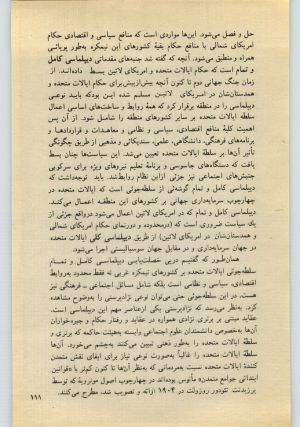 حل و فصل می‌شود. این‌ها مواردی است که منافع سیاسی و اقتصادی حکام
امریکای شمالی با منافع حکام بقیهٔ کشورهای این نیمکره به‌طور پویائی
همراه و منطبق می‌شود. آنچه که گفته شد جنبه‌های مقدماتی دیپلماسی کامل
و تمام است که حکام ایالات متحده و امریکای لاتین بسط داده‌اند. از
زمان جنگ جهانی دوم تا کنون آنچه بیش از پیش برای حکام ایالات متحده و
همدستان‌شان در امریکای لاتین مسلم شده این بوده که باید نوعی
دیپلماسی را در منطقه برقرار کرد که همهٔ روابط و ساخت‌های اساسی اعمال
سلطهٔ ایالات متحده بر سایر کشورهای منطقه را شامل شود. از آن پس
اهمیت کلیهٔ منافع اقتصادی، سیاسی و نظامی و معاهدات و قراردادها و
برنامه‌های فرهنگی، دانشگاهی، علمی، سندیکائی و مذهبی از طریق چگونگی
تأثیر آن‌ها بر سلطهٔ ایالات متحده تعیین می‌شد. این سیاست‌ها چنان بسط
یافت که دستگاه‌های جاسوسی و برنامهٔ تعلیم نیروهای ویژه برای سرکوبی
جنبش‌های اجتماعی نیز جزئی از این نظام روابط شد. باید توجه داشت که
دیپلماسی کامل و تمام گوشه‌ئی از سلطه‌جوئی است که ایالات متحده در
چهارچوب سرمایه‌داری جهانی بر کشورهای این منطقه اعمال می‌کند.
دیپلماسی کامل و تمام که در امریکای لاتین اعمال می‌شود درواقع جزئی از
یك سیاست ضروری است که (درمحدوده و دورنمای حکام امریکای شمالی
و همدستان‌شان در امریکای لاتین) از طریق دیپلماسی کلی ایالات متحده
در جهان سرمایه‌داری و در مقابل جهان سوسیالیستی اجرا می‌شود.
همان‌طور که گفتیم در پی خصلت‌یابی دیپلماسی کامل و تمام
سلطه‌جوئی ایالات متحده بر کشورهای نیمکرهٔ غربی نه فقط محدود به روابط
اقتصادی، سیاسی و نظامی است بلکه شامل مسائل اجتماعی ـ فرهنگی نیز
هست. در این سلطه‌جوئی حتی می‌توان نوعی نژادپرستی را به‌وضوح مشاهده
کرد. به‌نظر می‌رسد که نژادپرستی یکی از عناصر مهم این دیپلماسی است.
عقاید مبتنی بر برتری نژادی همواره در عقاید و رفتار حکام و جیره‌خواران
آن‌ها به‌خصوص دانشمندان علوم اجتماعی وابسته به‌هیئت حاکمه که برتری و
سلطهٔ ایالات متحده را به‌طور ذهنی تبیین می‌کنند به‌چشم می‌خورد. آن‌ها
سلطهٔ ایالات متحده را غالباً به‌صورت نوعی نیاز برای ایفای نقش متمدن
کنندهٔ ایالات متحده نسبت به‌مردمانی که به‌نظر آن‌ها تا کنون کم‌تر با «قوانین
ابتدائی جوامع متمدن» مأنوس بوده‌اند در چهارچوب اصول مونروئه که توسط
پرزیدنت تئودور روزولت در ۱۹۰۴ ارائه و تصویب شد، مطرح می‌کنند.
۱۱۱